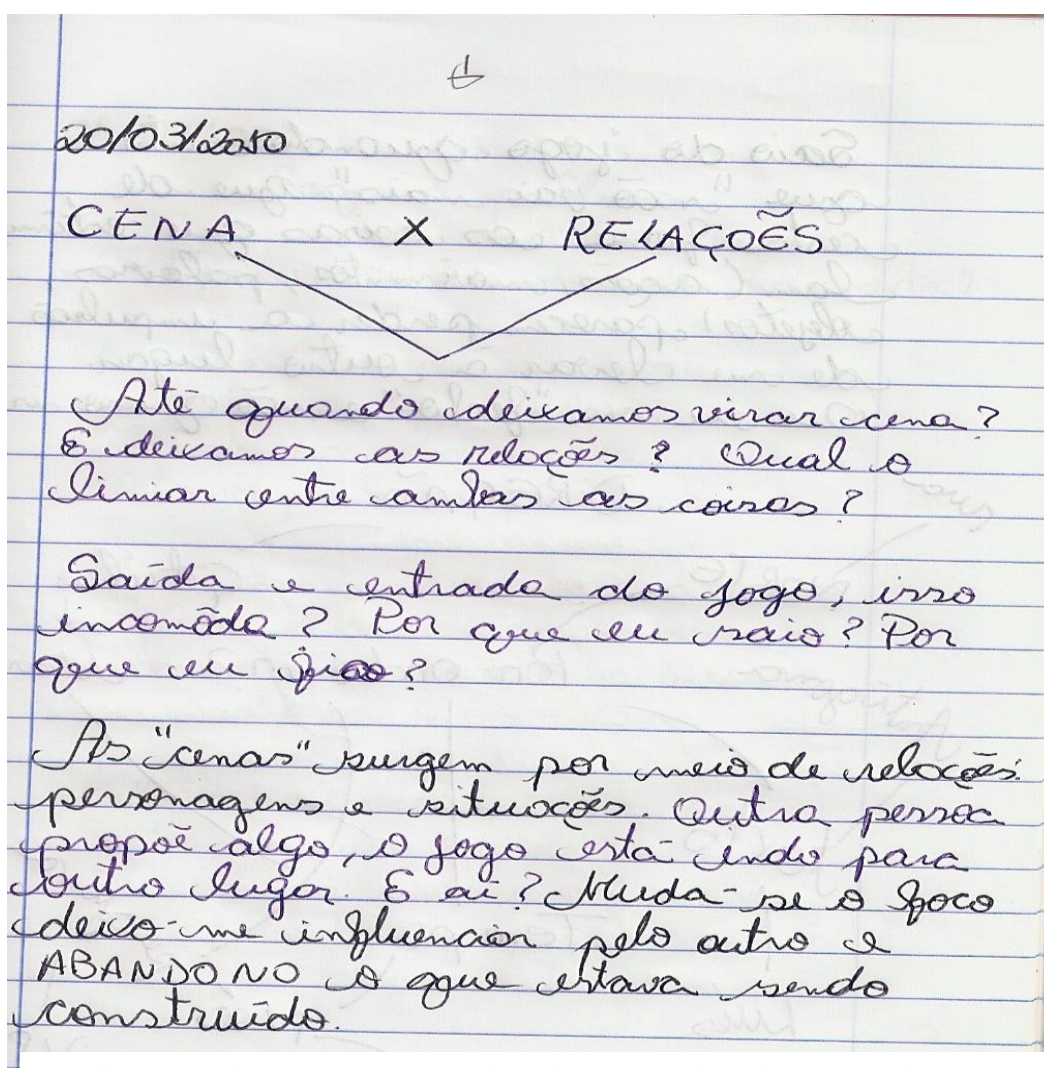 20/03/2010
CENA X RELAÇÕES
Até quando deixamos virar cena?
E deixamos as relações? Qual o
limiar entre ambas as coisas?
Saída e entrada do jogo, isso
incomôda? Por que eu saio? Por
que eu fico?
As "cenas" surgem por meio de relações.
personagens e situações. Outra pessoa
propoê algo, o jogo está indo para
outro lugar. E aí? Muda-se o foco
deixo-me influenciar pelo outro e
ABANDONO o que estava sendo
construído.